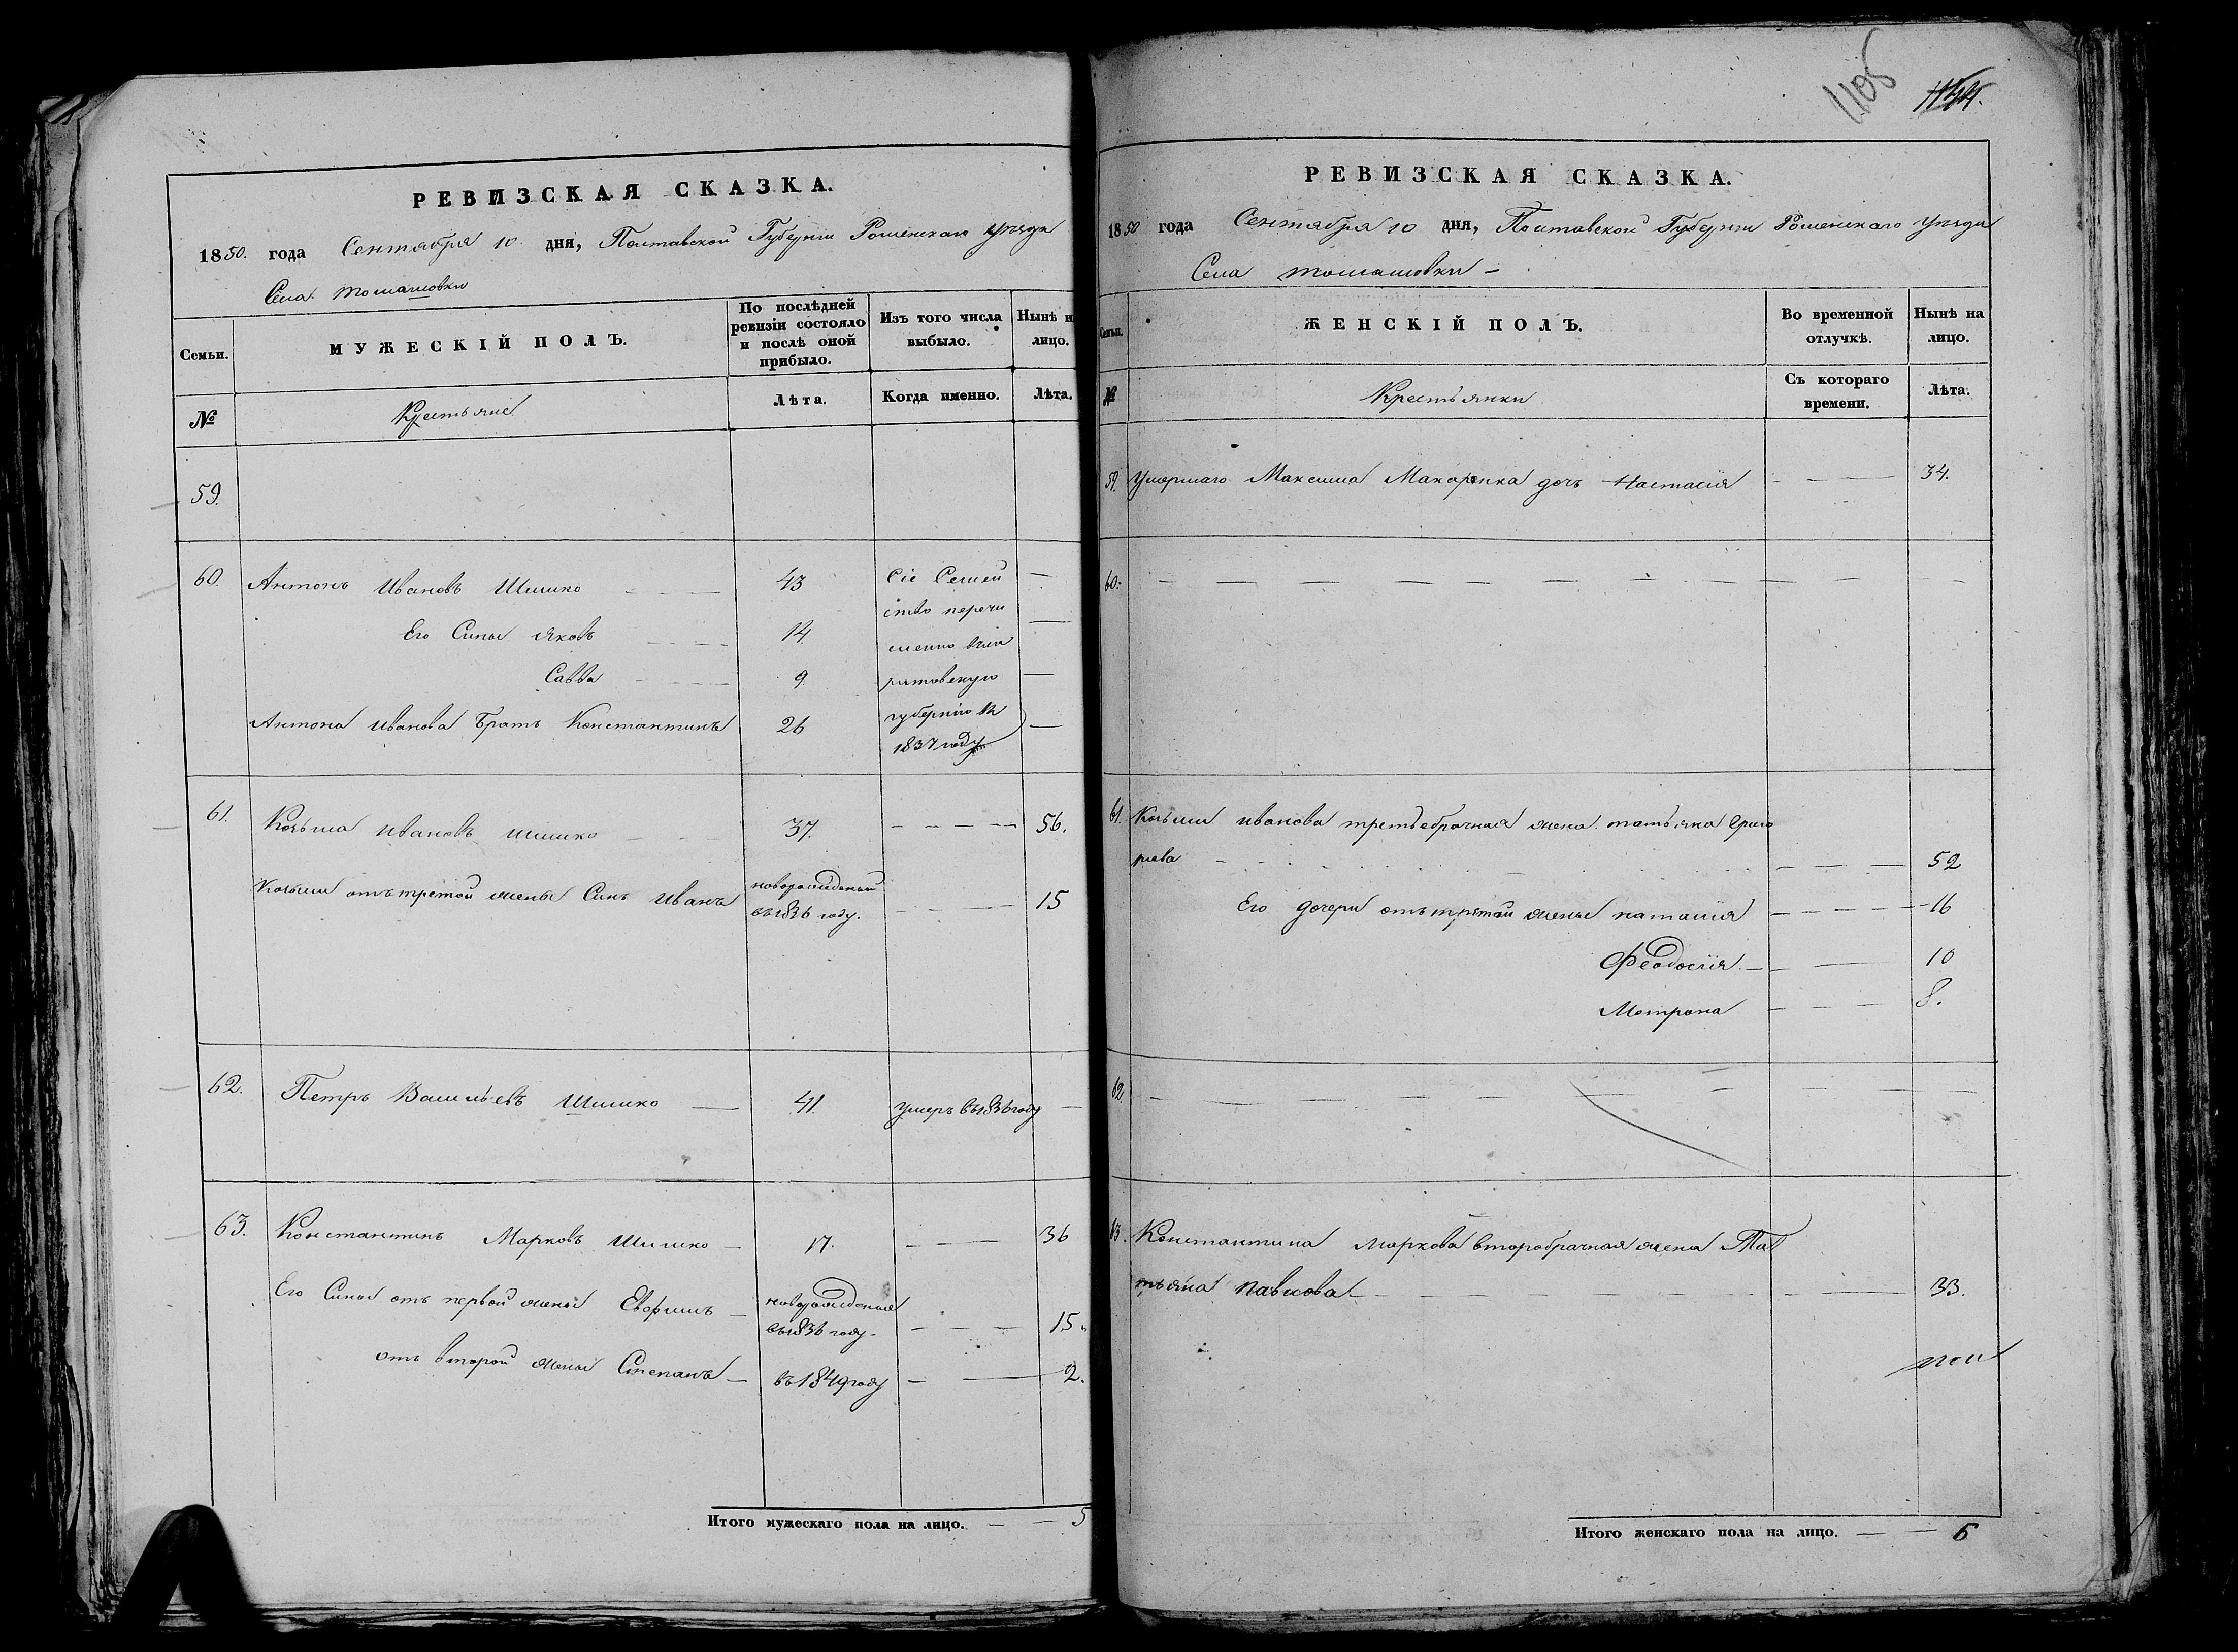 РЕВИЗСКАЯ СКАЗКА.
1850. года Сентября 10 дня, Полтавской Губернии Роменскаго уѣзда
Села Томашовки
Семьи.
МУЖЕСКІЙ ПОЛЪ.
По послѣдней ревизіи состояло и послѣ оной прибыло.
Изъ того числа выбыло.
Нынѣ на лицо.
№
Крестьяне
Лѣта.
Когда именно.
Лѣта.
59.
60. Антонъ Ивановъ Шишко 43
Его Сины Яковъ 14
Савва 9.
Антона Иванова Братъ Константинъ 26
Сіе Семей
ство перечи
слено
ратовскую
губернію въ
1837 году
61. Козьма Ивановъ Шишко 37. 56.
Козьми отъ третой жены Синъ Иванъ новорожденый
въ 1836 году. 15
62. Петръ Васильевъ Шишко 41. умеръ въ 1836 году
63. Константинъ Марковъ Шишко 17. 36
Его Сины отъ первой жены Евфимъ новорожденыя
въ 1836 году. 15.
отъ второй жены Степанъ въ 1849 году 2.
Итого мужескаго пола на лицо. 5
1105
РЕВИЗСКАЯ СКАЗКА.
1850 года Сентября 10 дня, Полтавской Губернии Роменскаго уѣзда
Села Томашовки
Семьи.
ЖЕНСКІЙ ПОЛЪ.
Во временной отлучкѣ.
Нынѣ на лицо.
№
Крестьянки
Съ котораго времени.
Лѣта.
59. Умершаго Максима Макаренка дочь Настасия 34.
60.
61. Козьми Иванова третьебрачная жена Татьяна Григо
риева 52
Его дочери отъ третой жены Наталия 16
Феодосия 10
Мотрона 8.
62.
63. Константина Маркова второбрачная жена Та
тьяна Павлова 33.
Итого женскаго пола на лицо. 6